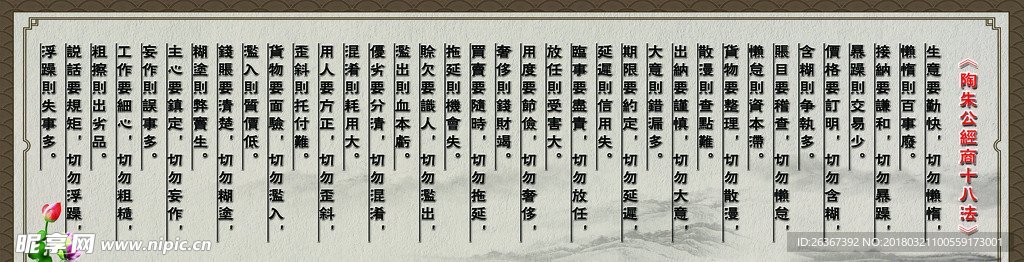 《陶朱公經商十八法》
生意要勤快，切勿懶惰，
懶惰則百事廢。
接納要謙和，切勿暴躁，
暴躁則交易少。
價格要訂明，切勿含糊，
含糊則爭執多。
賬目要稽查，切勿懶怠，
懶怠則資本滯。
貨物要整理，切勿散漫，
散漫則查點難。
出納要謹慎，切勿大意，
大意則錯漏多。
期限要約定，切勿延遲，
延遲則信用失。
臨事要盡責，切勿放任，
放任則受害大。
用度要節儉，切勿奢侈，
奢侈則錢財竭。
買賣要隨時，切勿拖延，
拖延則機會失。
賒欠要識人，切勿濫出，
濫出則血本虧。
優劣要分清，切勿混淆，
混淆則耗用大。
用人要方正，切勿歪斜，
歪斜則托付難。
貨物要面驗，切勿濫入，
濫入則質價低。
錢賬要清楚，切勿糊塗，
糊塗則弊竇生。
主心要鎮定，切勿妄作，
妄作則誤事多。
工作要細心，切勿粗糙，
粗擦則出劣品。
説話要規矩，切勿浮躁，
浮躁則失事多。
昵享网 www.nipic.cn
ID:26367392 NO:20180321100559173001